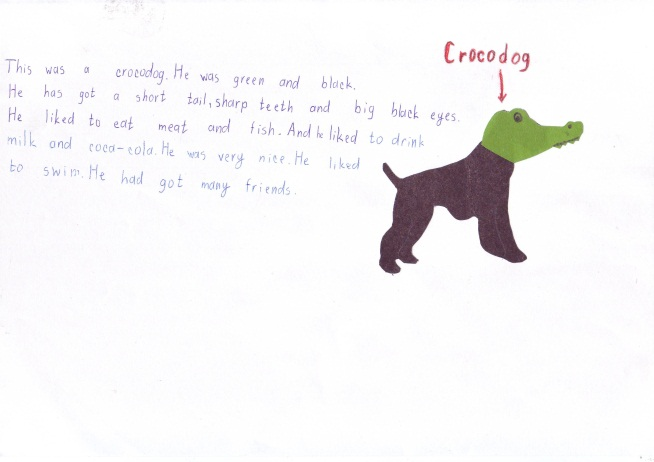 Crocodog
This was a crocodog. He was green and black.
He has got a short tail, sharp teeth and big black eyes.
He liked to eat meat and fish. And he liked to drink
milk and coca-cola. He was very nice. He liked
to swim. He had got many friends.